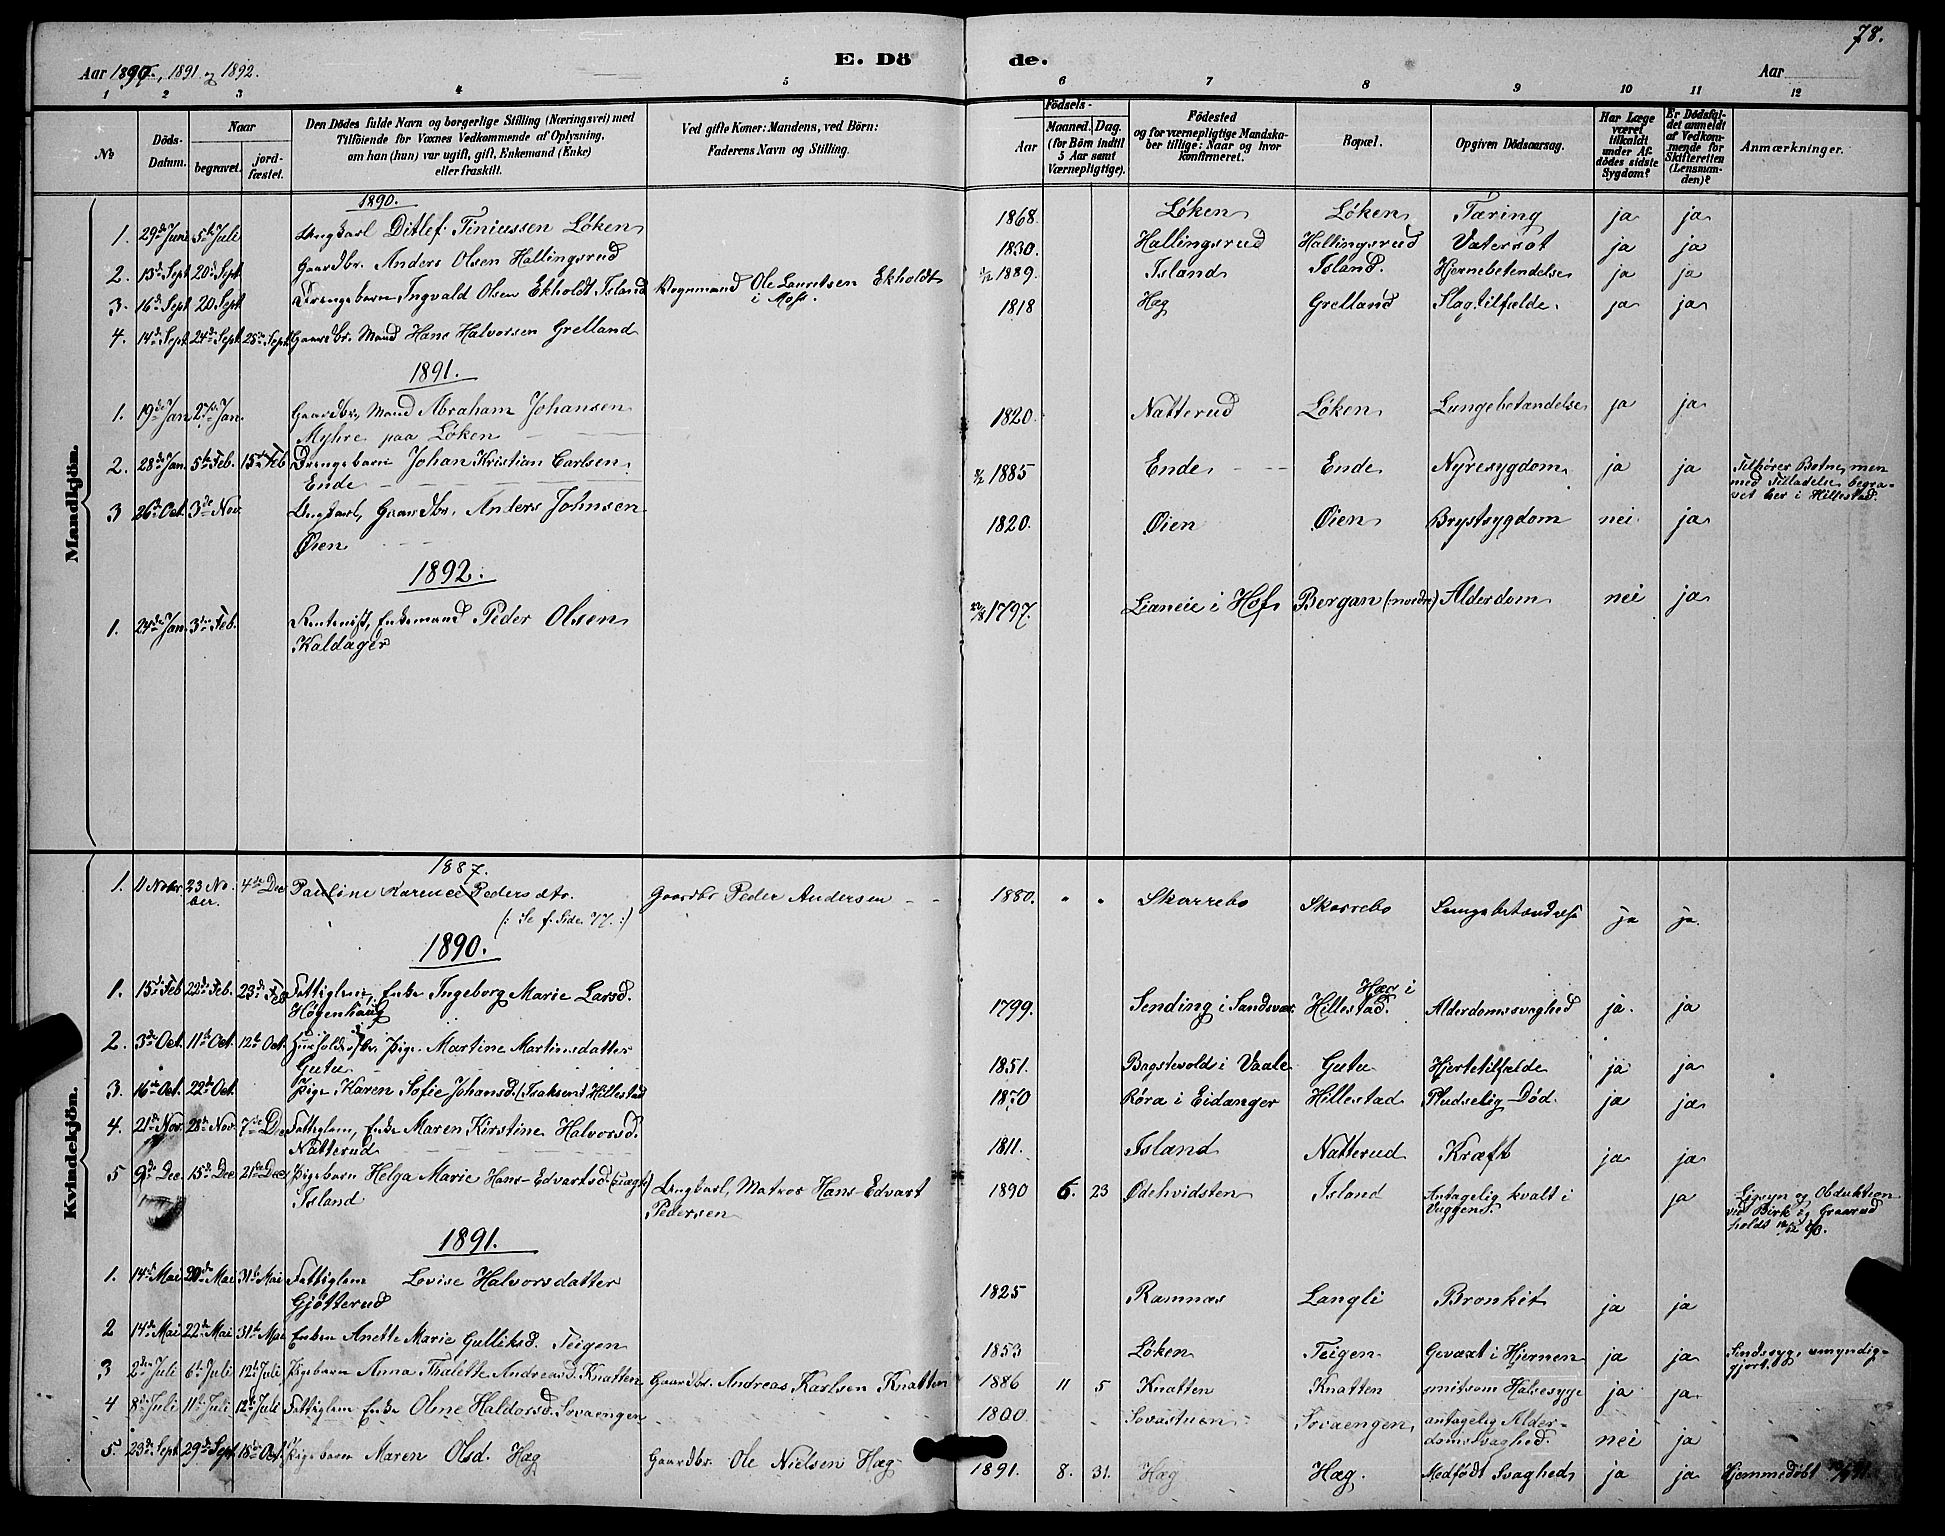 78.
E. Döde.
Aar 1890, 1891 og 1892.
Aar
1 2 3 4 5 6 7 8 9 10 11 12
No
Döds-Datum.
Naar
begravet.
jord-fæstet.
Den Dödes fulde Navn og borgerlige Stilling (Næringsvei) med
Tilföiende for Voxnes Vedkommende af Oplysning,
om han (hun) var ugift, gift, Enkemand (Enke)
eller fraskilt.
Ved gifte Koner: Mandens, ved Börn:
Faderens Navn og Stilling.
Födsels-
Aar
Maaned. Dag.
(for Börn indtil
5 Aar samt
Værnepligtige).
Födested
og for værnepligtige Mandska-
ber tillige: Naar og hvor
konfirmeret.
Bopæl.
Opgiven Dödsaarsag.
Har Læge
været
tilkaldt
under Af-
dödes sidste
Sygdom?
Er Dödsfal-
det anmeldt
af Vedkom-
mende for
Skifteretten
(Lensman-
den)?
Anmærkninger.
Mandkjön.
1890.
1. 29de Juni 5te Juli Ungkarl Ditlef Tiniussen Löken 1868. Löken Löken Tæring ja ja
2. 13de Sept 20de Sept Gaardbr. Anders Olsen Hallingsrud 1830. Hallingsrud Hallingsrud Vatersot ja ja
3. 16de Sept 20 Sept Drengebarn Ingvald Olsen Ekholdt Island Vognmand Ole Lauritsen Ekholdt 1889. Island Island. Hjernebetendelse ja ja
i Moss.
4. 14de Sept 24de Sept 28de Sept Gaardbr. Mand Hans Halvorsen Grelland 1818 Hæg Grelland Slagtilfælde. ja ja
1891.
1. 19de Jan 27de Jan. Gaardbr. Mand Abraham Johansen 1820. Natterud Löken Lungebetændelse ja ja
Myhre paa Löken
2. 28de Jan. 5te Feb. 15de Feb Drengebarn Johan Kristian Carlsen 1885 Ende Ende Nyresygdom ja ja Tilhører Botne, men
Ende med Tilladelse begra-
vet her i Hillestad.
3 26de Oct. 3de Nov Ungkarl, Gaardbr. Anders Johnsen 1820. Øien Øien Brystsygdom nei ja
Øien
1892.
1. 24de Jan. 3die Feb. Rentenist, Enkemand Peder Olsen 1797. Lianeie i Hof Bergan (:nordre) Alderdom nei ja
Kaldager
Kvindekjön.
1887.
1. 11 Novbr 23 No- 4de Dec Pauline Karence Pedersdtr. Gaardbr Peder Andersen 1880. " " Skarrebo Skarrebo Lungebetændelse ja ja.
ber.
(: Se f. Side. 77. :)
1890.
1. 15de Feb 22de Feb. 23de Feb Fattiglem, Enke Ingeborg Marie Larsd. 1799. Sending i Sandsvær Hær i Hillestad. Alderdomssvaghed ja. ja
Högenhaug
2. 3die Oct. 11te Oct. 12te Oct. Pige. Martine Martinsdatter 1851. Bagstevold i Vaale Gutu Hjertetilfælde ja ja
Gutu
3 16de Oct. 22de Oct. Pige Karen Sofie Johansd. (Isaksen) Hillestad 1870 Röra i Eidanger Hillestad Pludselig Död. ja ja
4. 21de Nov 28de Nov. 7de Dec Fattiglem, Enke Maren Kirstine Halvorsd. 1811. Island Natterud Kræft ja ja
Natterud
5 9de Dec 15de Dec 21de Dec Pigebarn Helga Marie Hans-Edvartsd. (:uægte) Ungkarl, Matros Hans Edvart 1890 6. 23 Ødehvidsten Island Antagelig kvalt i ja Ligsyn og Obduktion
Island Pedersen Vuggen. ved Birk og Graarud
holdt 12/12 90.
1891.
1. 14de Mai 20de Mai 31te Mai Fattiglem Lovise Halvorsdatter 1825 Ramnæs Langli Bronkit ja ja
Gjötterud
2 14de Mai 22de Mai 31te Mai Enken Anette Marie Gulliksd. Teigen 1853 Löken Teigen Gevæxt i Hjernen ja ja Sindssyg, umyndig-
gjort.
3 2den Juli 6te Juli 12te Juli Pigebarn Anna Thalette Andreasd. Knatten Gaardbr. Andreas Karlsen Knatten 1886 11 5 Knatten Knatten ondsom Halsesyge ja ja
4 8de Juli 11te Juli 12te Juli Fattiglem Enke Olene Haldorsd. Sovaengen 1800 Sovastuen Sovaengen antagelig Alder-
domssvaghed. nei ja
5. 23de Sept 29de Sept 18de Oct. Pigebarn Maren Olsd. Hæg Gaardbr. Ole Nielsen Hæg 1891. 8. 31. Hæg Hæg. Medfödt Svaghed ja ja Hjemmedöbt